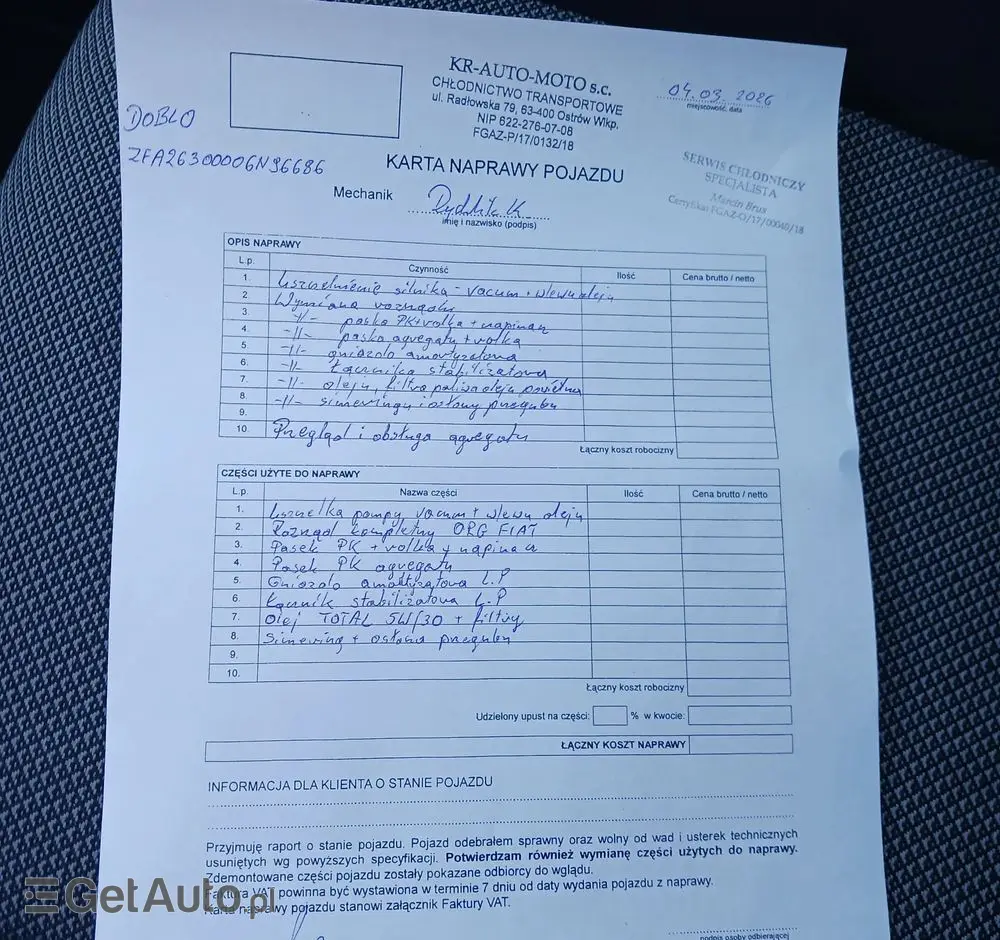 KR-AUTO-MOTO s.c.
CHŁODNICTWO TRANSPORTOWE
ul. Radłowska 79, 63-400 Ostrów Wlkp.
NIP 622-276-07-08
FGAZ-P/17/0132/18
04.03.2026
miejscowość, data
DOBLO
ZFA26300006N96686
KARTA NAPRAWY POJAZDU
SERWIS CHŁODNICZY
SPECJALISTA
Marcin Brus
Certyfikat FGAZ-O/17/00040/18
Mechanik
imię i nazwisko (podpis)
OPIS NAPRAWY
L.p. Czynność Ilość Cena brutto / netto
1. Uszczelnienie silnika - vacum + wlewu oleju
2. Wymiana rozrządu
3. -//- paska PK + rolka + napinacz
4. -//- paska agregatu + rolka
5. -//- gniazda amortyzatora
6. -//- Łącznika stabilizatora
7. -//- oleju, filtra paliwa oleju powietrza
8. -//- simeringu i osłony przegubu
9.
10. Przegląd i obsługa agregatu
Łączny koszt robocizny
CZĘŚCI UŻYTE DO NAPRAWY
L.p. Nazwa części Ilość Cena brutto / netto
1. Uszczelka pompy vacum + wlewu oleju
2. Rozrząd kompletny ORG FIAT
3. Pasek PK + rolka + napinacz
4. Pasek PK agregatu
5. Gniazdo amortyzatora L.P
6. Łącznik stabilizatora L.P
7. Olej TOTAL 5W/30 + filtry
8. Simering + osłona przegubu
9.
10.
Łączny koszt robocizny
Udzielony upust na części: % w kwocie:
ŁĄCZNY KOSZT NAPRAWY
INFORMACJA DLA KLIENTA O STANIE POJAZDU
Przyjmuję raport o stanie pojazdu. Pojazd odebrałem sprawny oraz wolny od wad i usterek technicznych
usuniętych wg powyższych specyfikacji. Potwierdzam również wymianę części użytych do naprawy.
Zdemontowane części pojazdu zostały pokazane odbiorcy do wglądu.
Faktura VAT powinna być wystawiona w terminie 7 dniu od daty wydania pojazdu z naprawy.
Karta naprawy pojazdu stanowi załącznik Faktury VAT.
GetAuto.pl
podpis osoby odbierającej